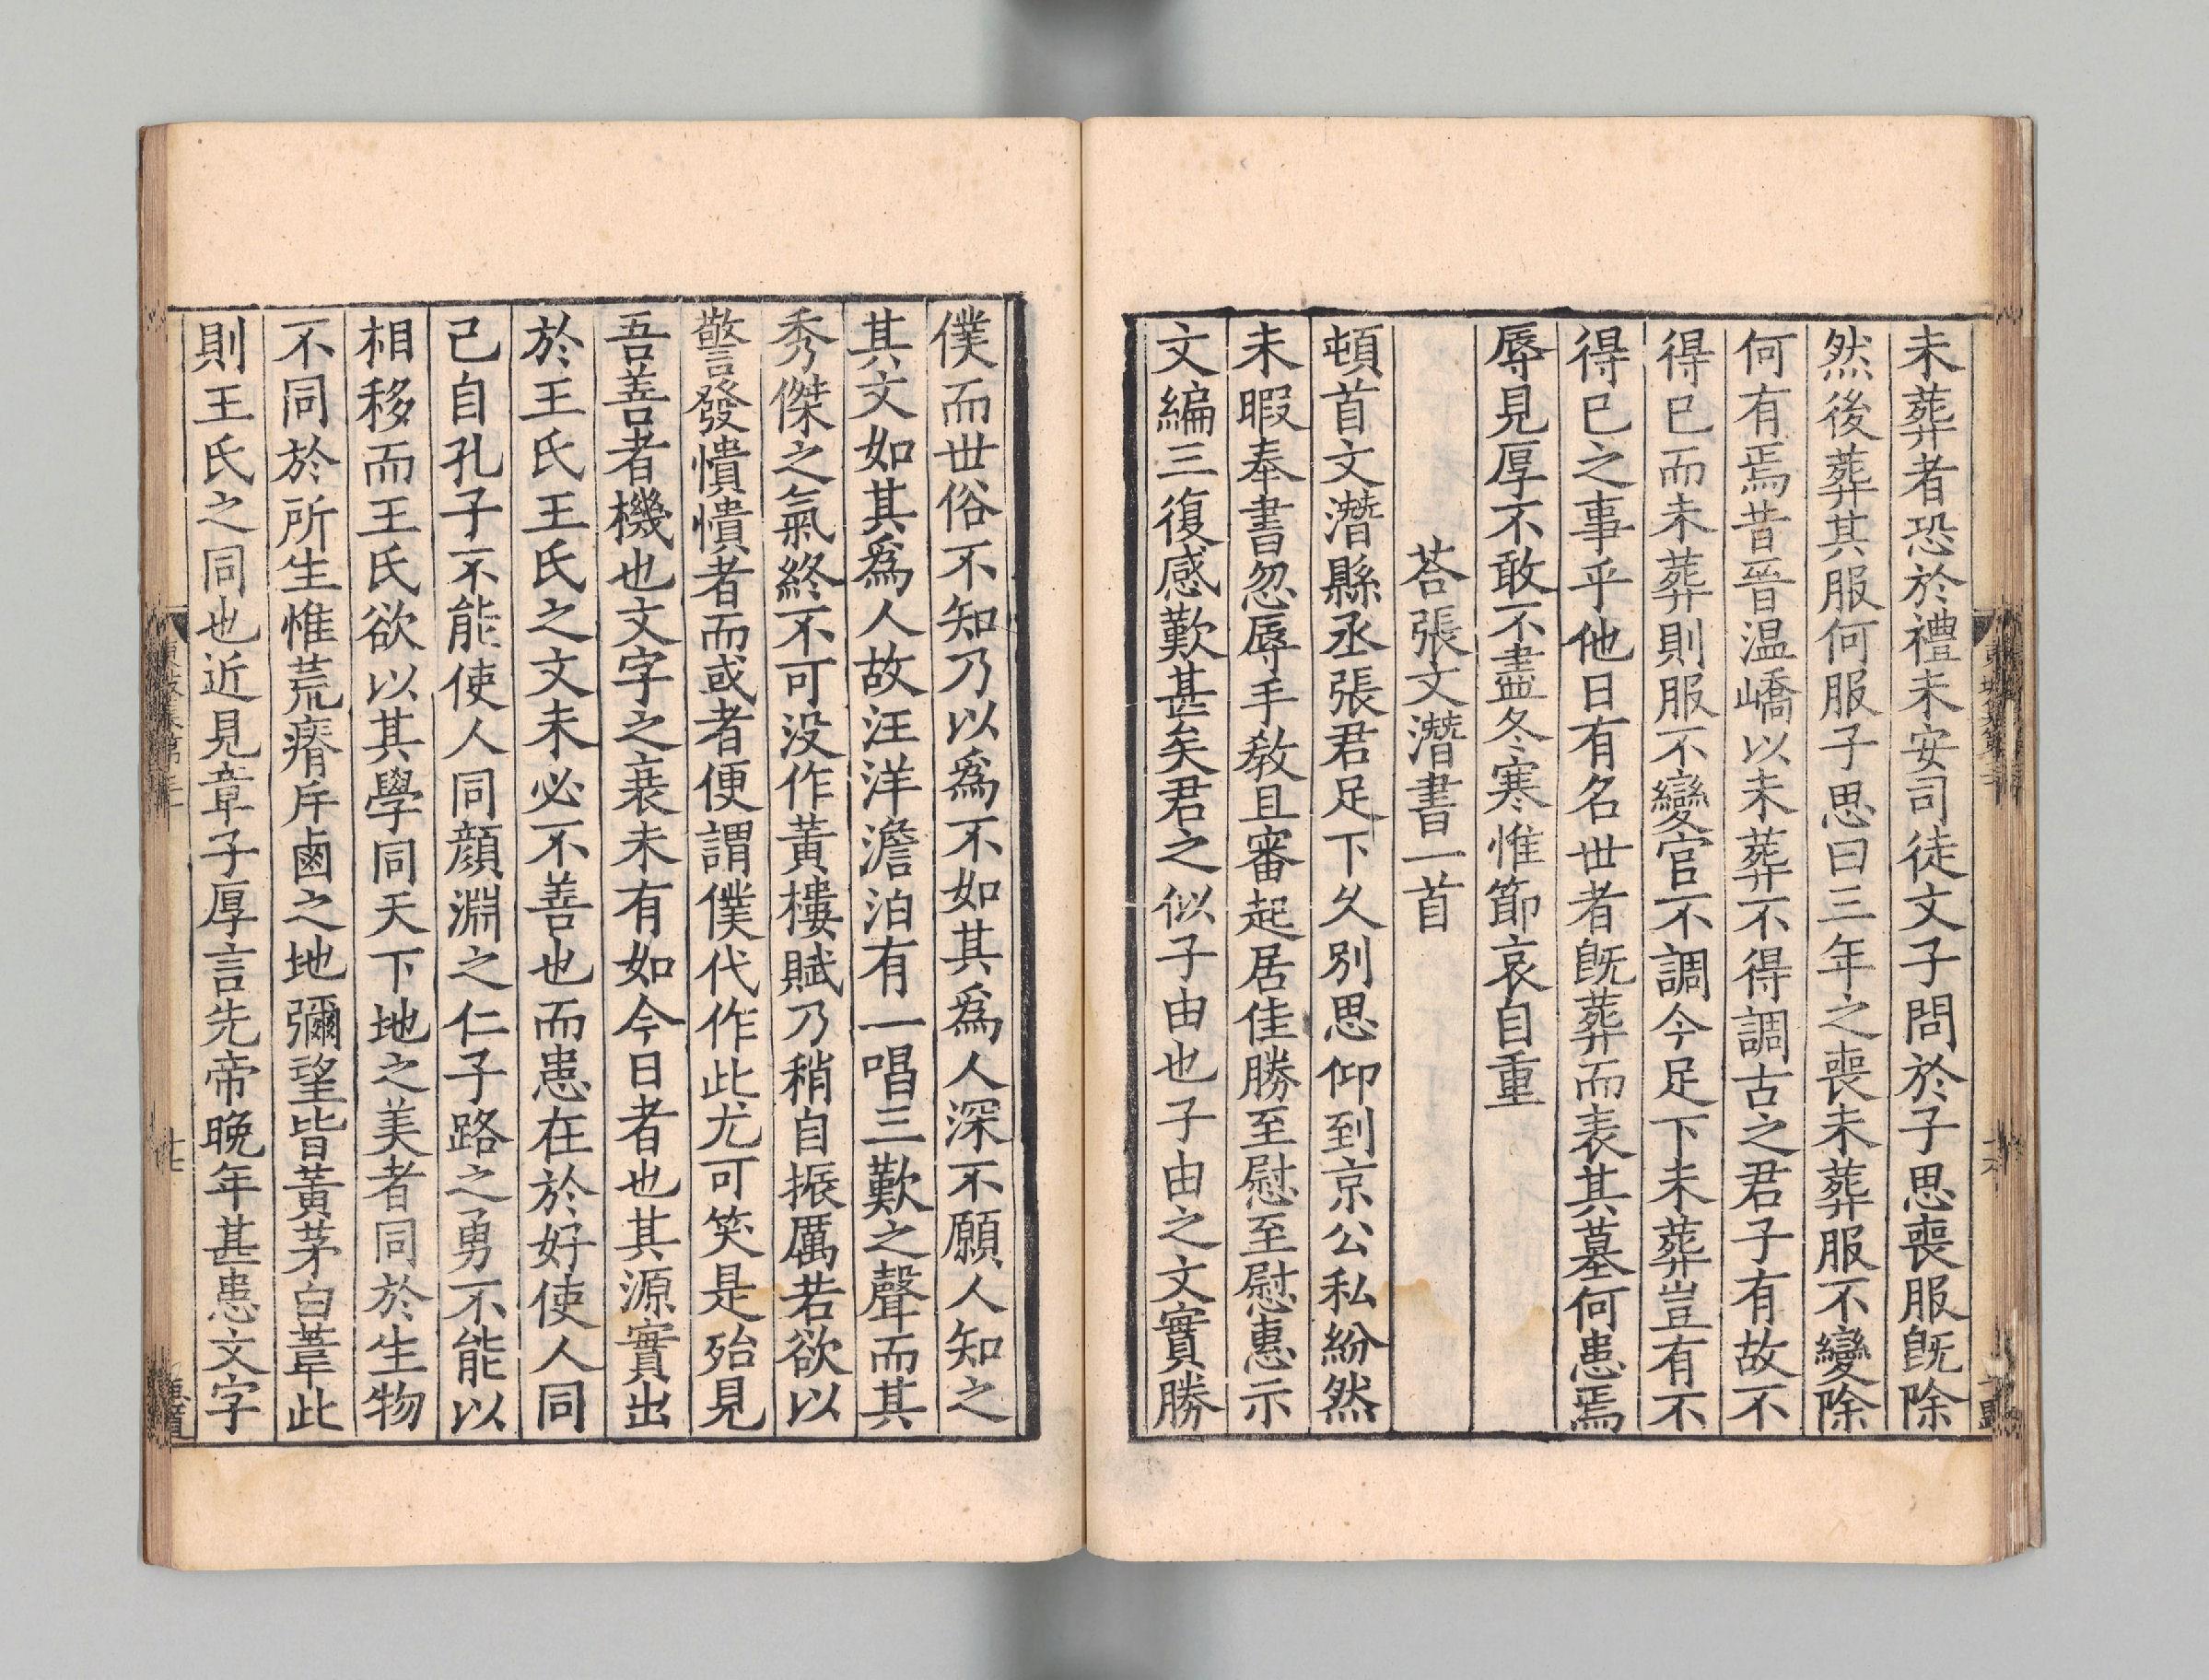 未葬者恐於禮未安司徒文子問於子思喪服旣除
然後葬其服何服子思曰三年之喪未葬服不變除
何有焉昔晉温嶠以未葬不得調古之君子有故不
得已而未葬則服不變官不調今足下未葬豈有不
得已之事乎他日有名世者旣葬而表其墓何患焉
辱見厚不敢不盡冬寒惟節哀自重
荅張文潛書一首
頓首文潛縣丞張君足下久別思仰到京公私紛然
未暇奉書忽辱手教且審起居佳勝至慰至慰惠示
文編三復感歎甚矣君之似子由也子由之文實勝
僕而世俗不知乃以爲不如其爲人深不願人知之
其文如其爲人故汪洋澹泊有一唱三歎之聲而其
秀傑之氣終不可没作黃樓賦乃稍自振厲若欲以
警發憒憒者而或者便謂僕代作此尤可笑是殆見
吾善者機也文字之衰未有如今日者也其源實出
於王氏王氏之文未必不善也而患在於好使人同
己自孔子不能使人同顔淵之仁子路之勇不能以
相移而王氏欲以其學同天下地之美者同於生物
不同於所生惟荒瘠斥鹵之地彌望皆黃茅白葦此
則王氏之同也近見章子厚言先帝晚年甚患文字